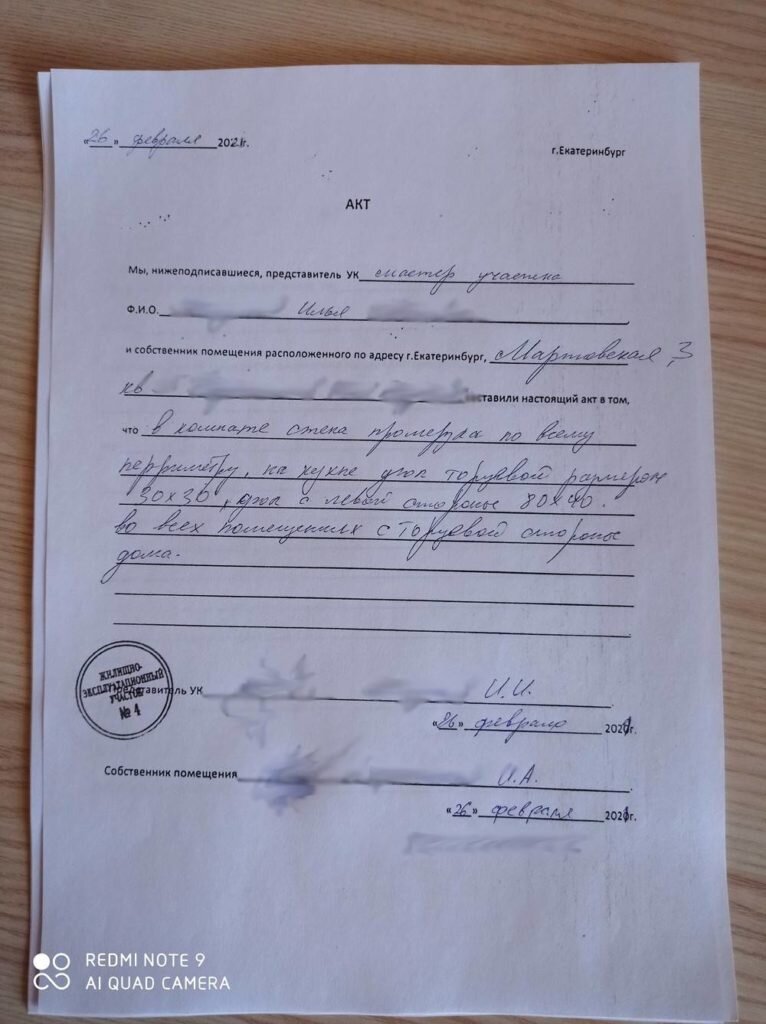 «26» февраля 2021г.
г.Екатеринбург
АКТ
Мы, нижеподписавшиеся, представитель УК мастер участка
Ф.И.О. Илья
и собственник помещения расположенного по адресу г.Екатеринбург, Мартовская, 3
кв ставили настоящий акт в том,
что в комнате стена промерзла по всему
перриметру, на кухне угол торцевой размером
30х30, угол с левой стороны 80х40.
во всех помещениях с торцевой стороны
дома.
ЖИЛИЩНО-
ЭКСПЛУАТАЦИОННЫЙ
УЧАСТОК
№ 4
Представитель УК И.И.
«26» февраля 2021г.
Собственник помещения И.А.
«26» февраля 2021г.
REDMI NOTE 9
AI QUAD CAMERA